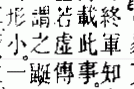 終軍知
載此事
若虛傳
謂之鼮
形小。一